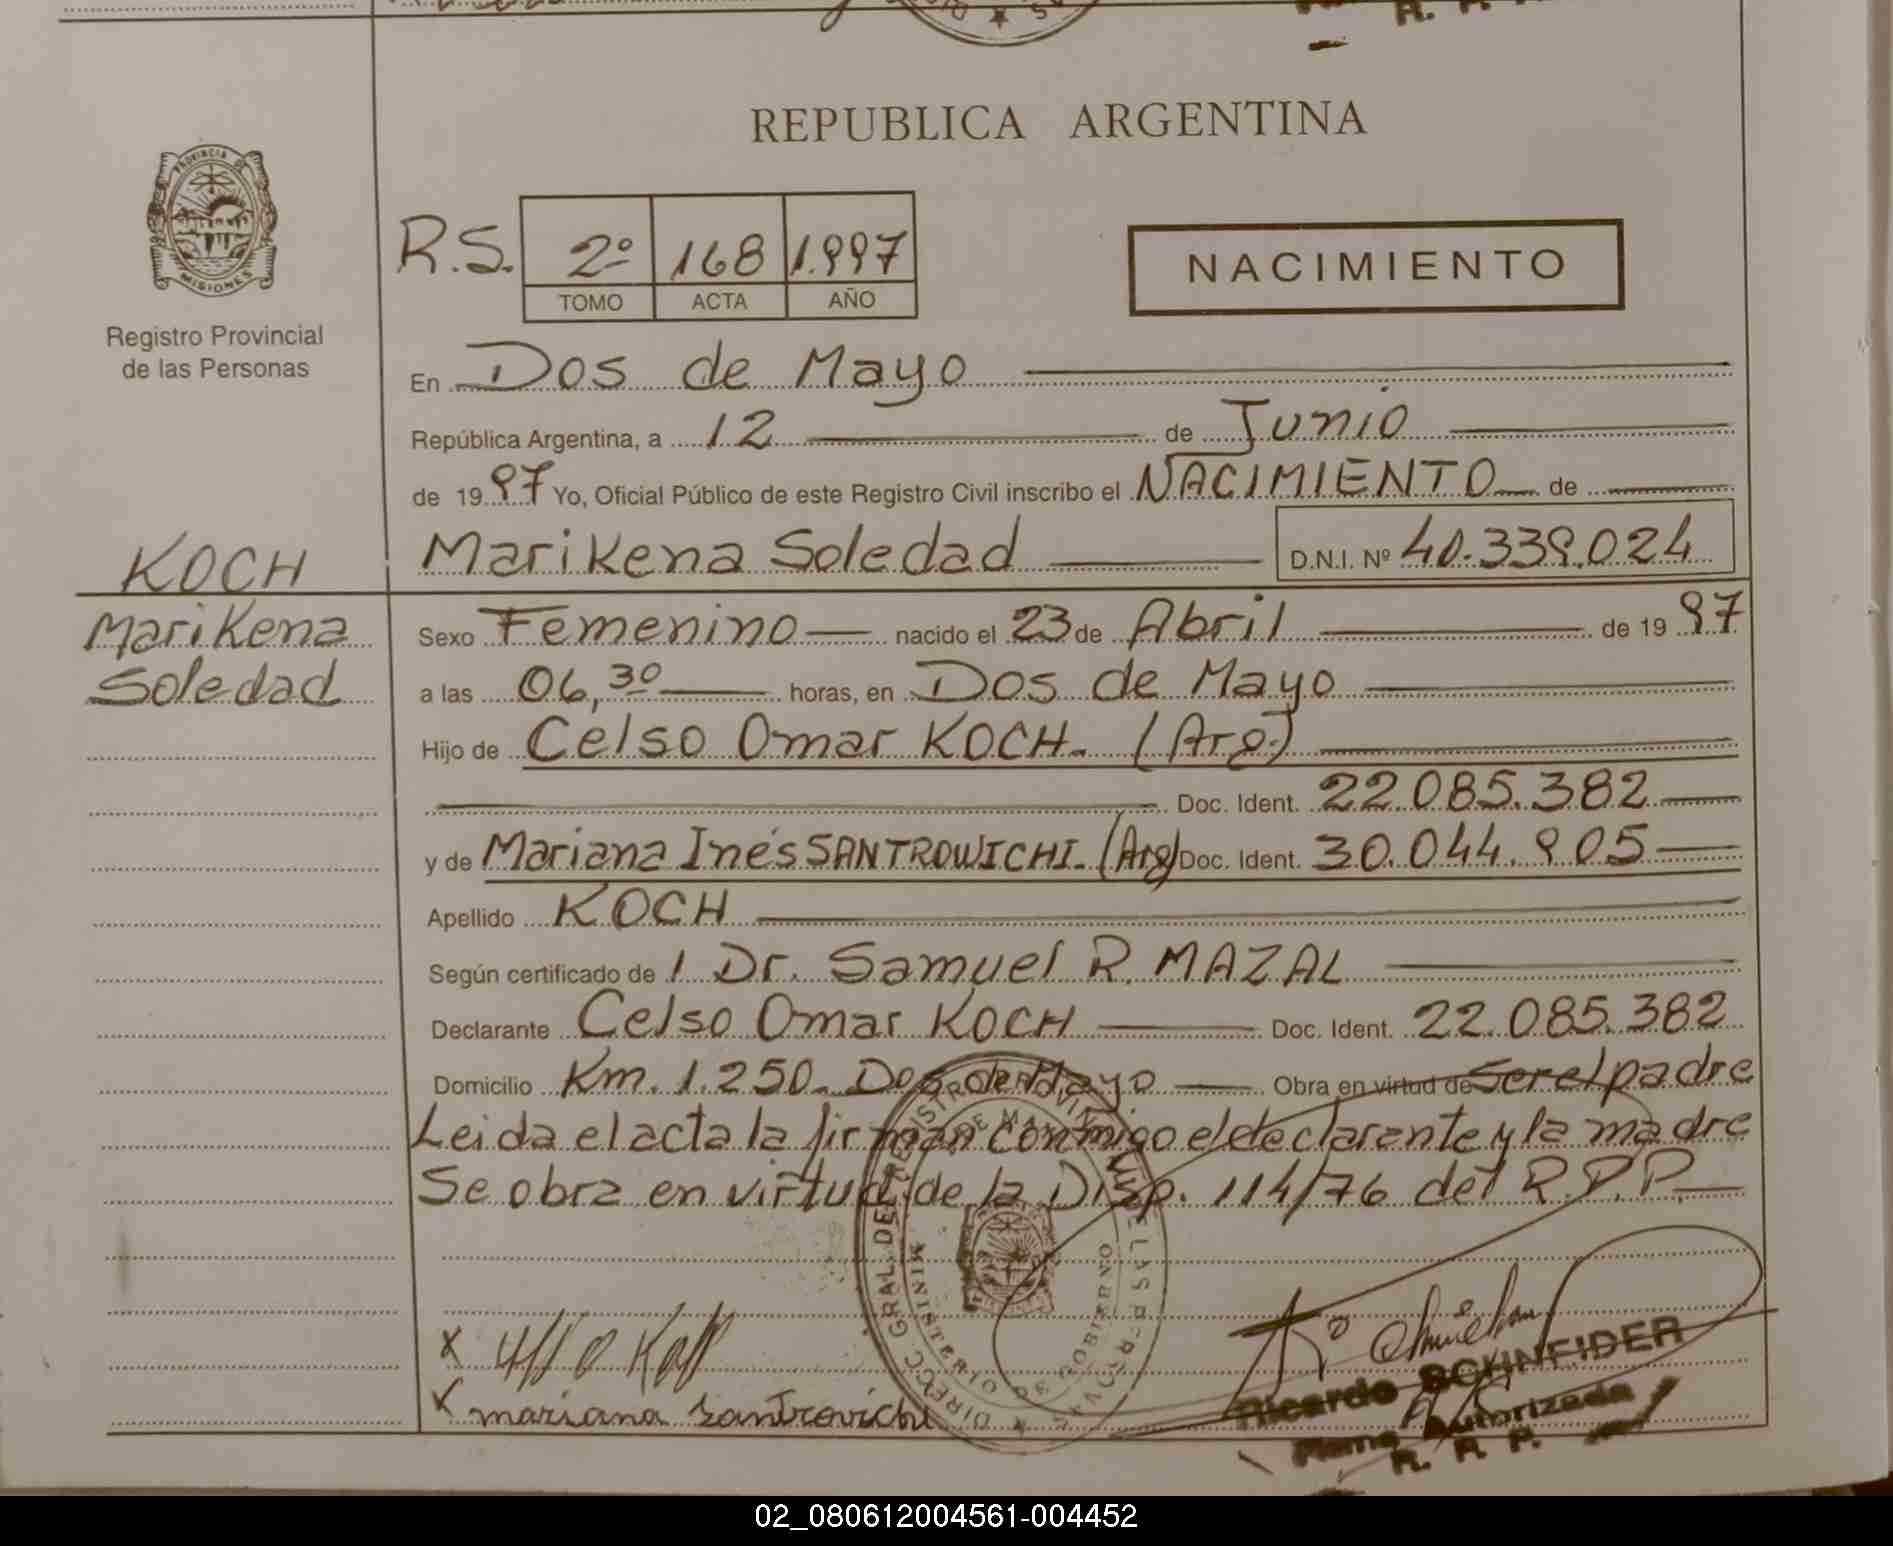 REPUBLICA ARGENTINA
PROVINCIA DE
MISIONES
Registro Provincial
de las Personas
R.S.
2º 168 1.997
TOMO ACTA AÑO
NACIMIENTO
En Dos de Mayo
República Argentina, a 12 de Junio
de 1997 Yo, Oficial Público de este Registro Civil inscribo el NACIMIENTO de
KOCH
Marikena Soledad D.N.I. Nº 40.339.024
Marikena
Soledad
Sexo Femenino nacido el 23 de Abril de 1997
a las 06,30 horas, en Dos de Mayo
Hijo de Celso Omar KOCH. (Arg)
Doc. Ident. 22.085.382
y de Mariana Inés SANTROWICHI. (Arg) Doc. Ident. 30.044.905
Apellido KOCH
Según certificado de 1 Dr. Samuel R. MAZAL
Declarante Celso Omar KOCH Doc. Ident. 22.085.382
Domicilio Km. 1.250. Dos de Mayo Obra en virtud de Ser el padre
Leida el acta la firman conmigo el declarante y la madre
Se obra en virtud de la Disp. 114/76 del R.P.P.
x
x mariana santrovichi
Ricardo SCHNEIDER
Firma Autorizada
R. P. P.
02_080612004561-004452